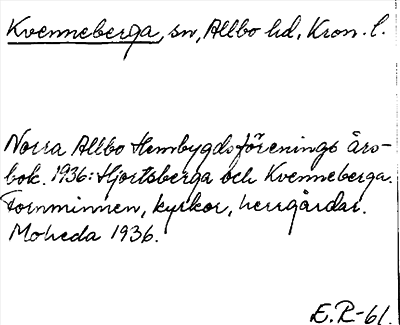 Kvenneberga, sn, Allbo hd, Kron. l.
Norra Allbo Hembygdsförenings års-
bok. 1936: Hjortsberga och Kvenneberga.
Fornminnen, kyrkor, herrgårdar.
Moheda 1936.
E.R-61.